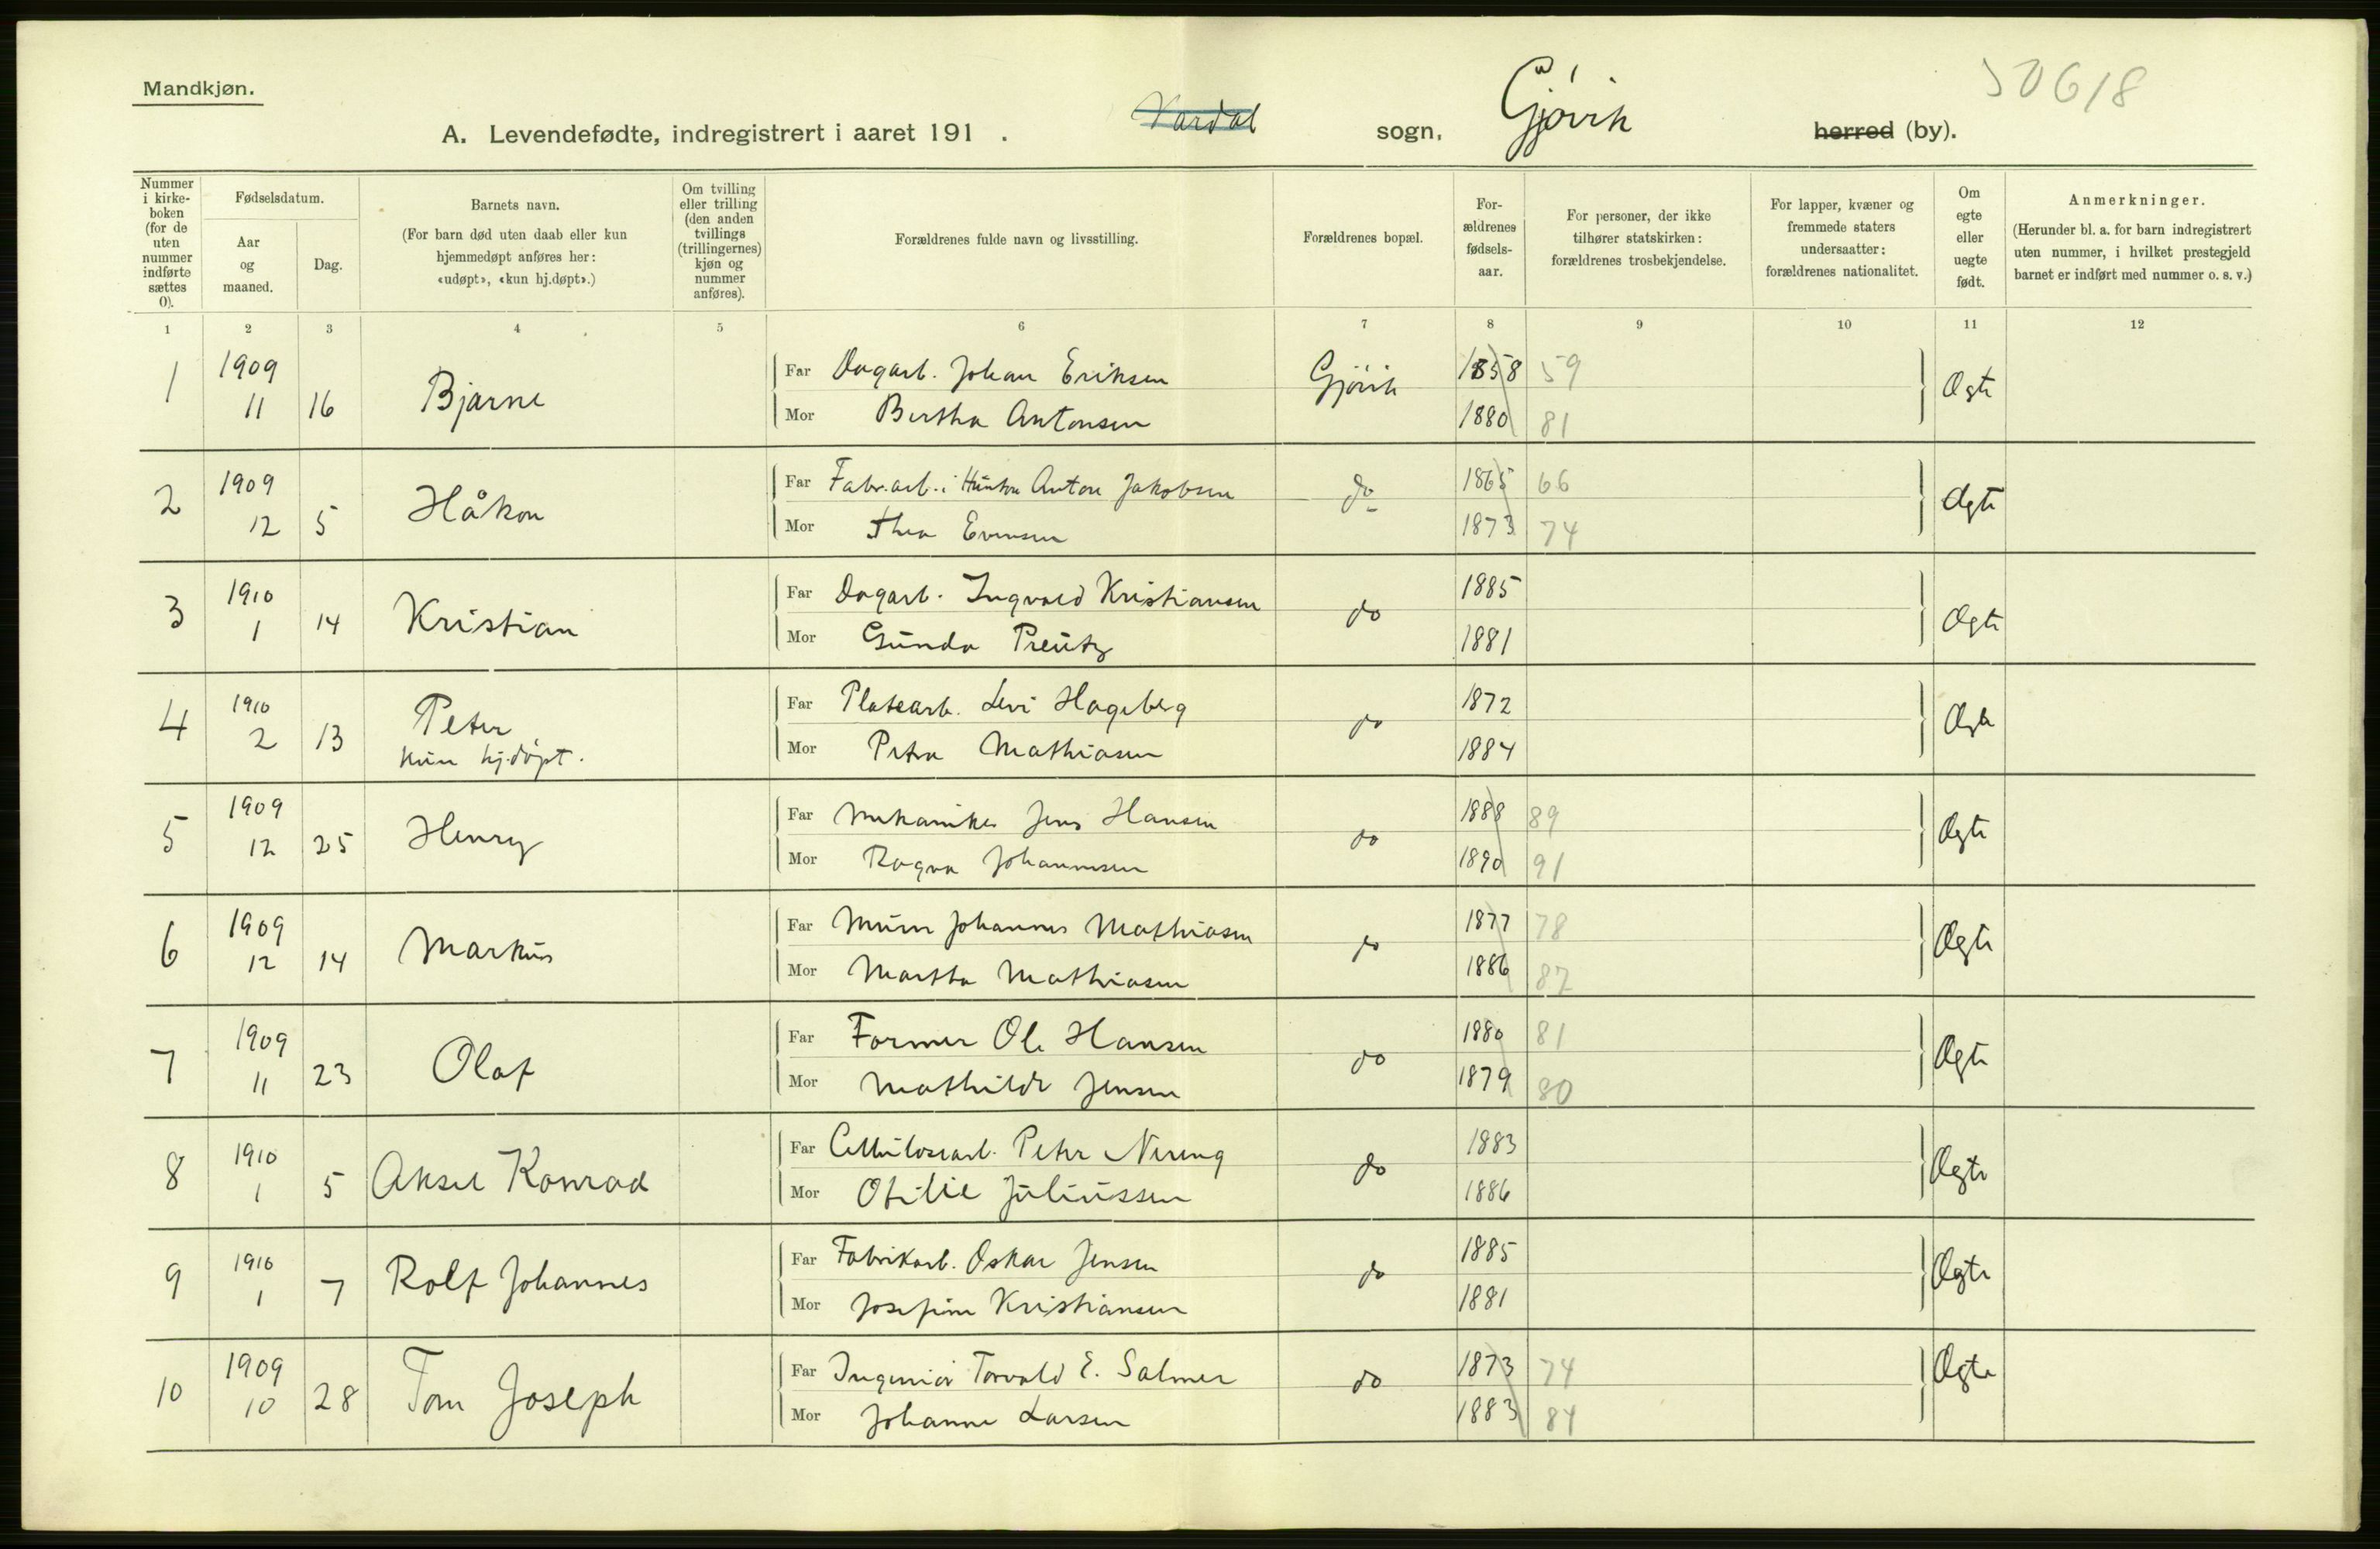 Mandkjøn.
50618
A. Levendefødte, indregistrert i aaret 191 . Vardal sogn, Gjøvik herred (by).
Nummer i kirke-boken (for de uten nummer indførte sættes 0).
Fødselsdatum.
Aar og maaned.
Dag.
Barnets navn.
(For barn død uten daab eller kun hjemmedøpt anføres her: «udøpt», «kun hj.døpt».)
Om tvilling eller trilling (den anden tvillings (trillingernes) kjøn og nummer anføres).
Forældrenes fulde navn og livsstilling.
Forældrenes bopæl.
For-ældrenes fødsels-aar.
For personer, der ikke tilhører statskirken: forældrenes trosbekjendelse.
For lapper, kvæner og fremmede staters undersaatter: forældrenes nationalitet.
Om egte eller uegte født.
Anmerkninger.
(Herunder bl. a. for barn indregistrert uten nummer, i hvilket prestegjeld barnet er indført med nummer o. s. v.)
1 2 3 4 5 6 7 8 9 10 11 12
1 1909 11 16 Bjarne Far Dagarb. Johan Eriksen Gjövik 1858 59 Ægte
Mor Bertha Antonsen 1880 81
2 1909 12 5 Håkon Far Fabr.arb. i Hunton Anton Jakobsen do 1865 66 Ægte
Mor Thea Evensen 1873 74
3 1910 1 14 Kristian Far Dagarb. Ingvald Kristiansen do 1885 Ægte
Mor Gunda Preutz 1881
4 1910 2 13 Peter Far Platearb. Levi Hageberg do 1872 Ægte
kun hj.døpt. Mor Petra Mathiasen 1884
5 1909 12 25 Henry Far Mekaniker Jens Hansen do 1888 89 Ægte
Mor Ragna Johannesen 1890 91
6 1909 12 14 Markus Far Murer Johannes Mathiasen do 1877 78 Ægte
Mor Martha Mathiasen 1886 87
7 1909 11 23 Olaf Far Former Ole Hansen do 1880 81 Ægte
Mor Mathilde Jensen 1879 80
8 1910 1 5 Aksel Konrad Far Cellulosearb. Peter Nereng do 1883 Ægte
Mor Otilie Juliussen 1886
9 1910 1 7 Rolf Johannes Far Fabrikarb. Oskar Jensen do 1885 Ægte
Mor Josefine Kristiansen 1881
10 1909 10 28 Tom Joseph Far Ingeniør Torvald E. Salmer do 1873 74 Ægte
Mor Johanne Larsen 1883 84